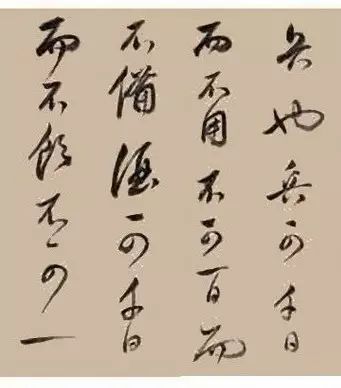 兵也兵可千日
而不用不可一日而
不備酒可千日
而不飲不可一